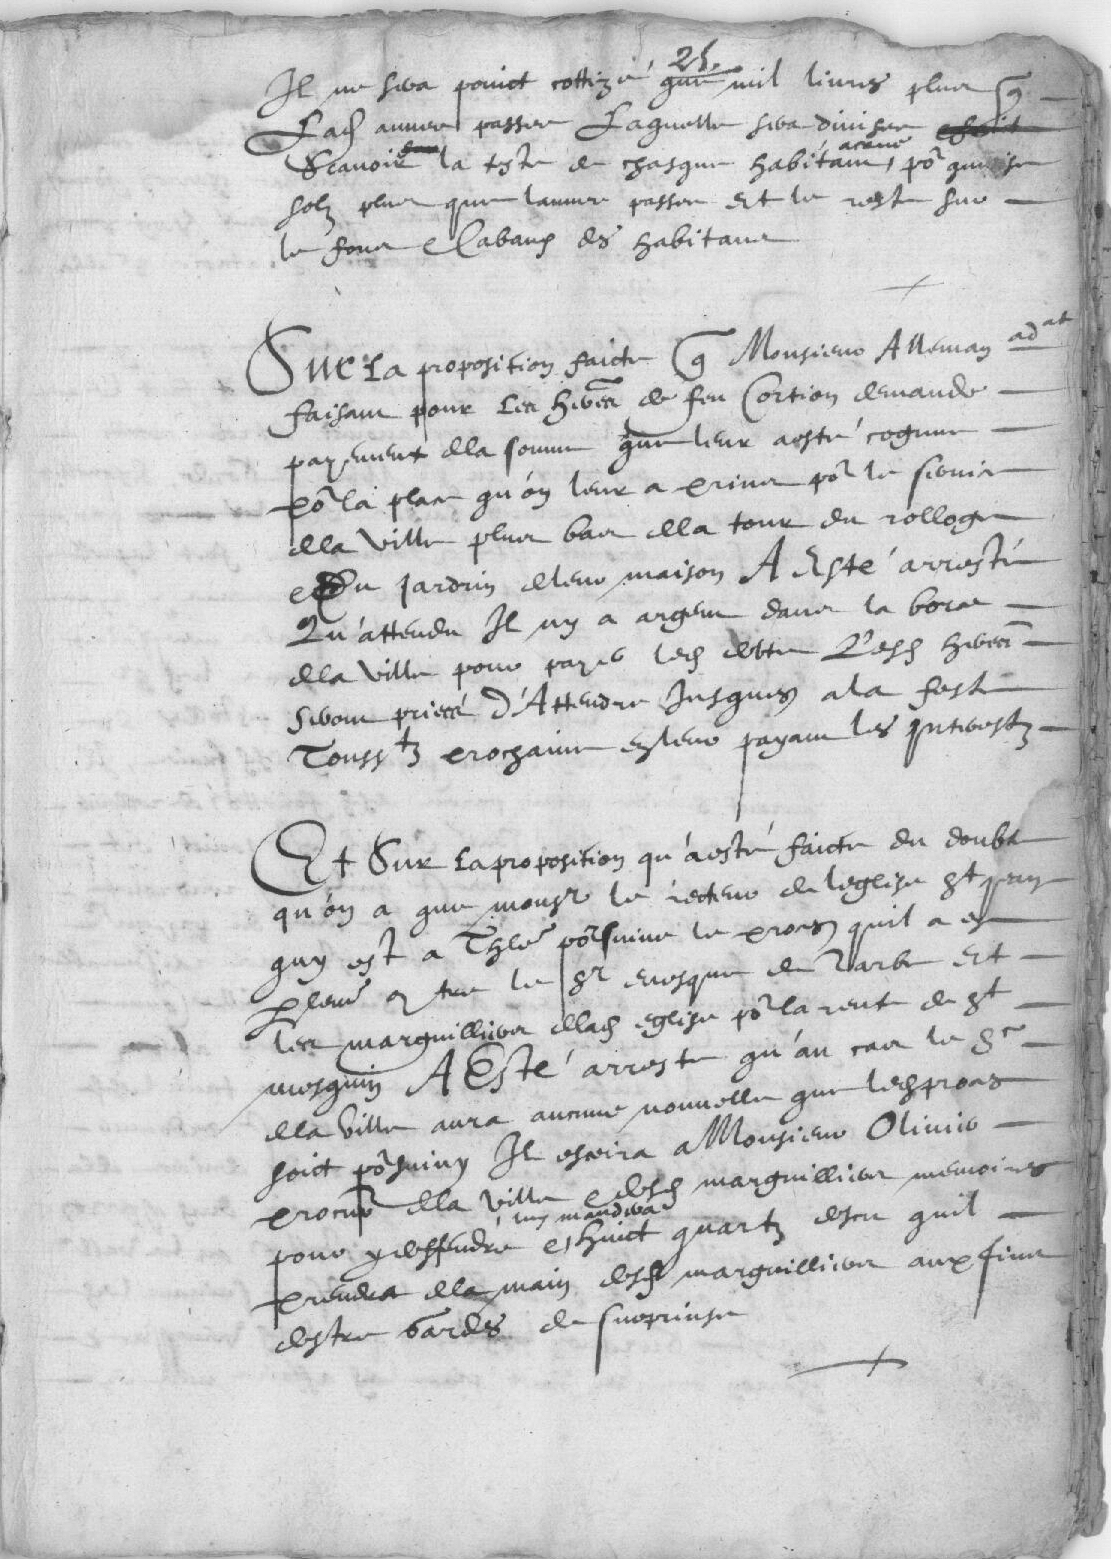 Il ne sera point cottizé que mil livres plus q
Lad annee passee Laquelle sera divisee
Scavoir la teste de chasque habitant, por quinse
solz plus que lannee passee Et le reste sur
le fons e Cabaux des habitans
Sur La proposition faicte q Monsieur Alleman adat
faisant pour Les herers de feu Cortion demande
payement dla somme que leur a esté cogneue
por la place qu'on leur a prinse por le servic
dla ville plus bas dla tour du rolloge
e Du Jardrin dleur maison A Esté arresté
Qu'attendu Il ny a argent dans la borse
dla ville pour payer led debte Lesd herers
seront priees D'Attendre Jusques a la feste
Touss ts prochaine en leur payant les Interestz
Et Sur La proposition qu'a esté faicte du doubte
qu'on a que monsr le recteur de leglise St Jean
quy est a Thle porsuive le proces quil a en
contre le Sr evesque de Tarbe Et
les marguilliers dlad eglise por la rente de St
mesguin A Esté arreste qu'au cas le Sre
dla ville aura aucune nouvelle que led proces
soict porsuivy Il escrira a Monsieur Olivier
procur dla ville e desd marguilliers memoires
pour y deffendre e, luy mandera huict quartz descu quil
prendra dla main desd marguilliers aux fins
destre Gardes de surprinse